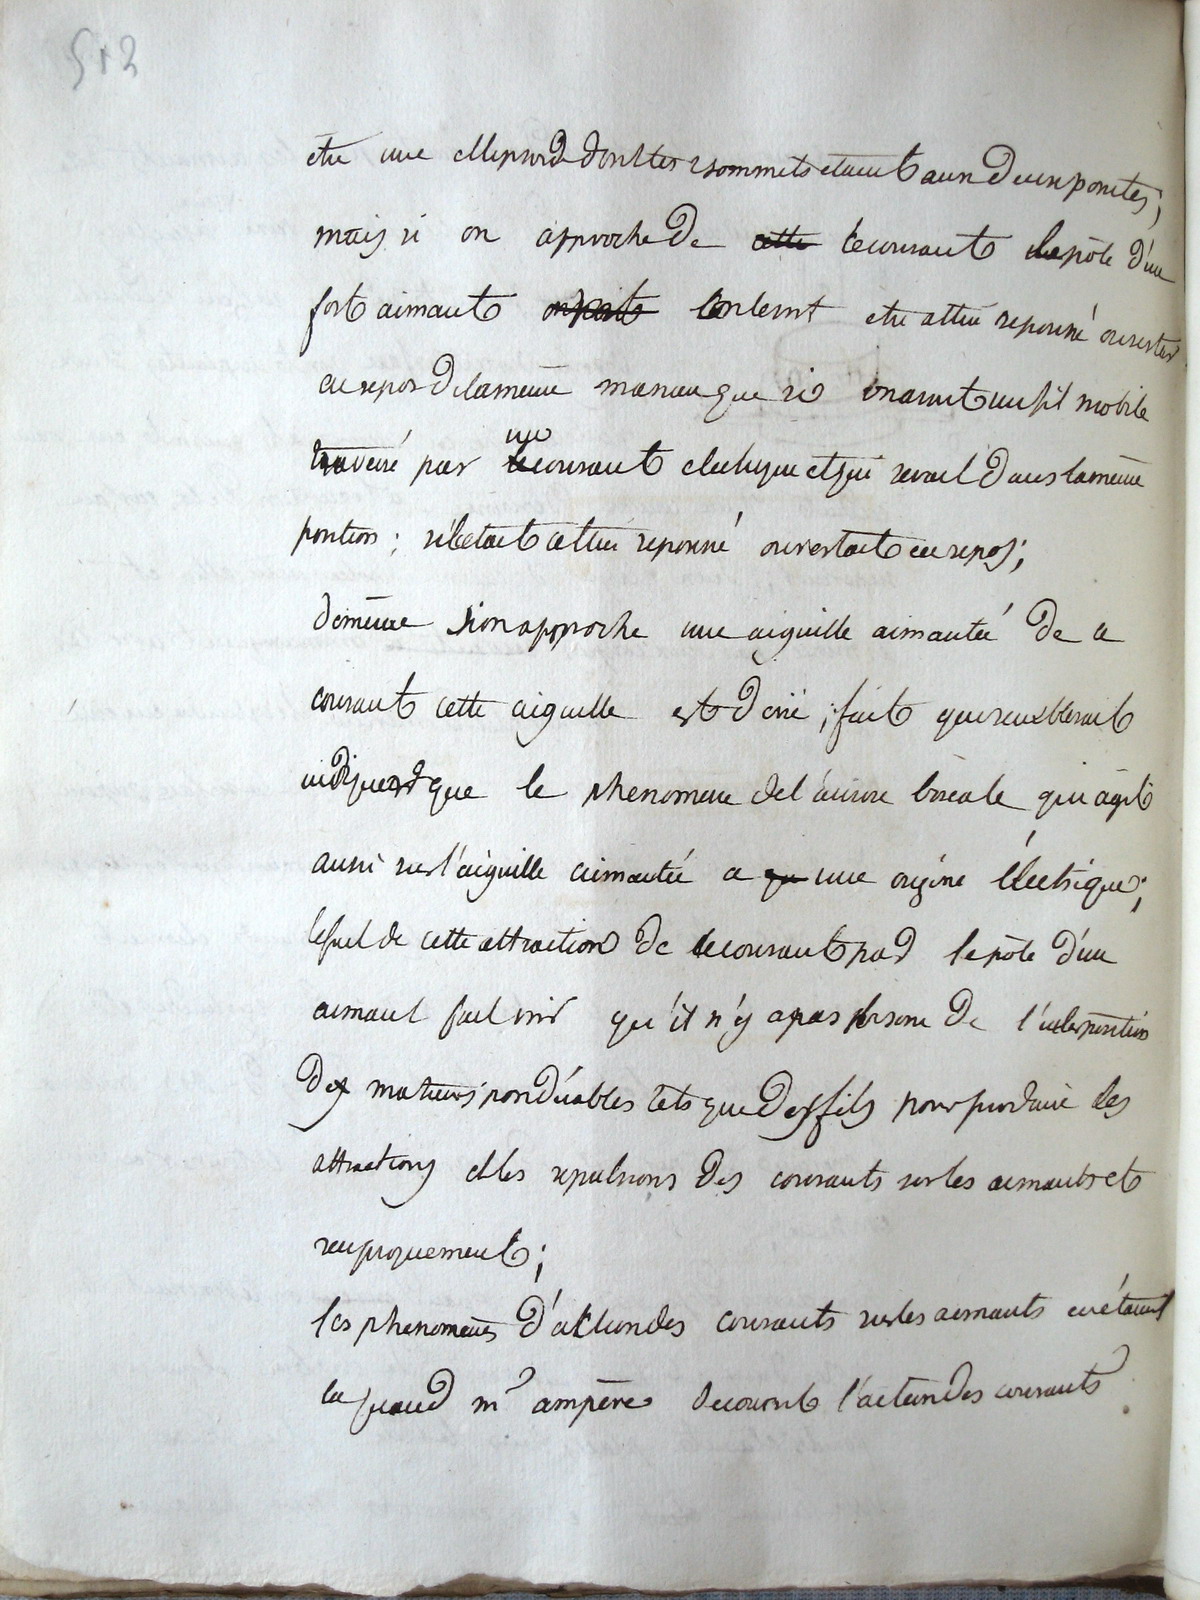 512
etre une ellipsoide dont les 2 sommets etaient aux deux pointes;
mais si on approche de cette le courant le pôle d'un
fort aimant on voit etre attiré repoussé ou rester
en repos de la meme maniere que si on avait un fil mobile
traversé par un le courant electrique et qui serait dans la meme
position; s'il etait attiré repoussé ou restait en repos;
de meme si on approche une aiguille aimantée de ce
courant cette aiguille est devié; fait qui semblerait
indiquer que le phenomene de l'aurore boreale qui agit
aussi sur l'aiguille aimantée a qu une origine électrique;
le fait de cette attraction de le courant par le pôle d'un
aimant fait voir qu'il n'y a pas besoin de l'interposition
des matieres ponderables tels que des fils pour produire les
attractions et les repulsions des courants sur les aimants et
reciproquement;
les phenomenes d'action des courants sur les aimants en étaient
la quand mr ampère decouvrit l'action des courants